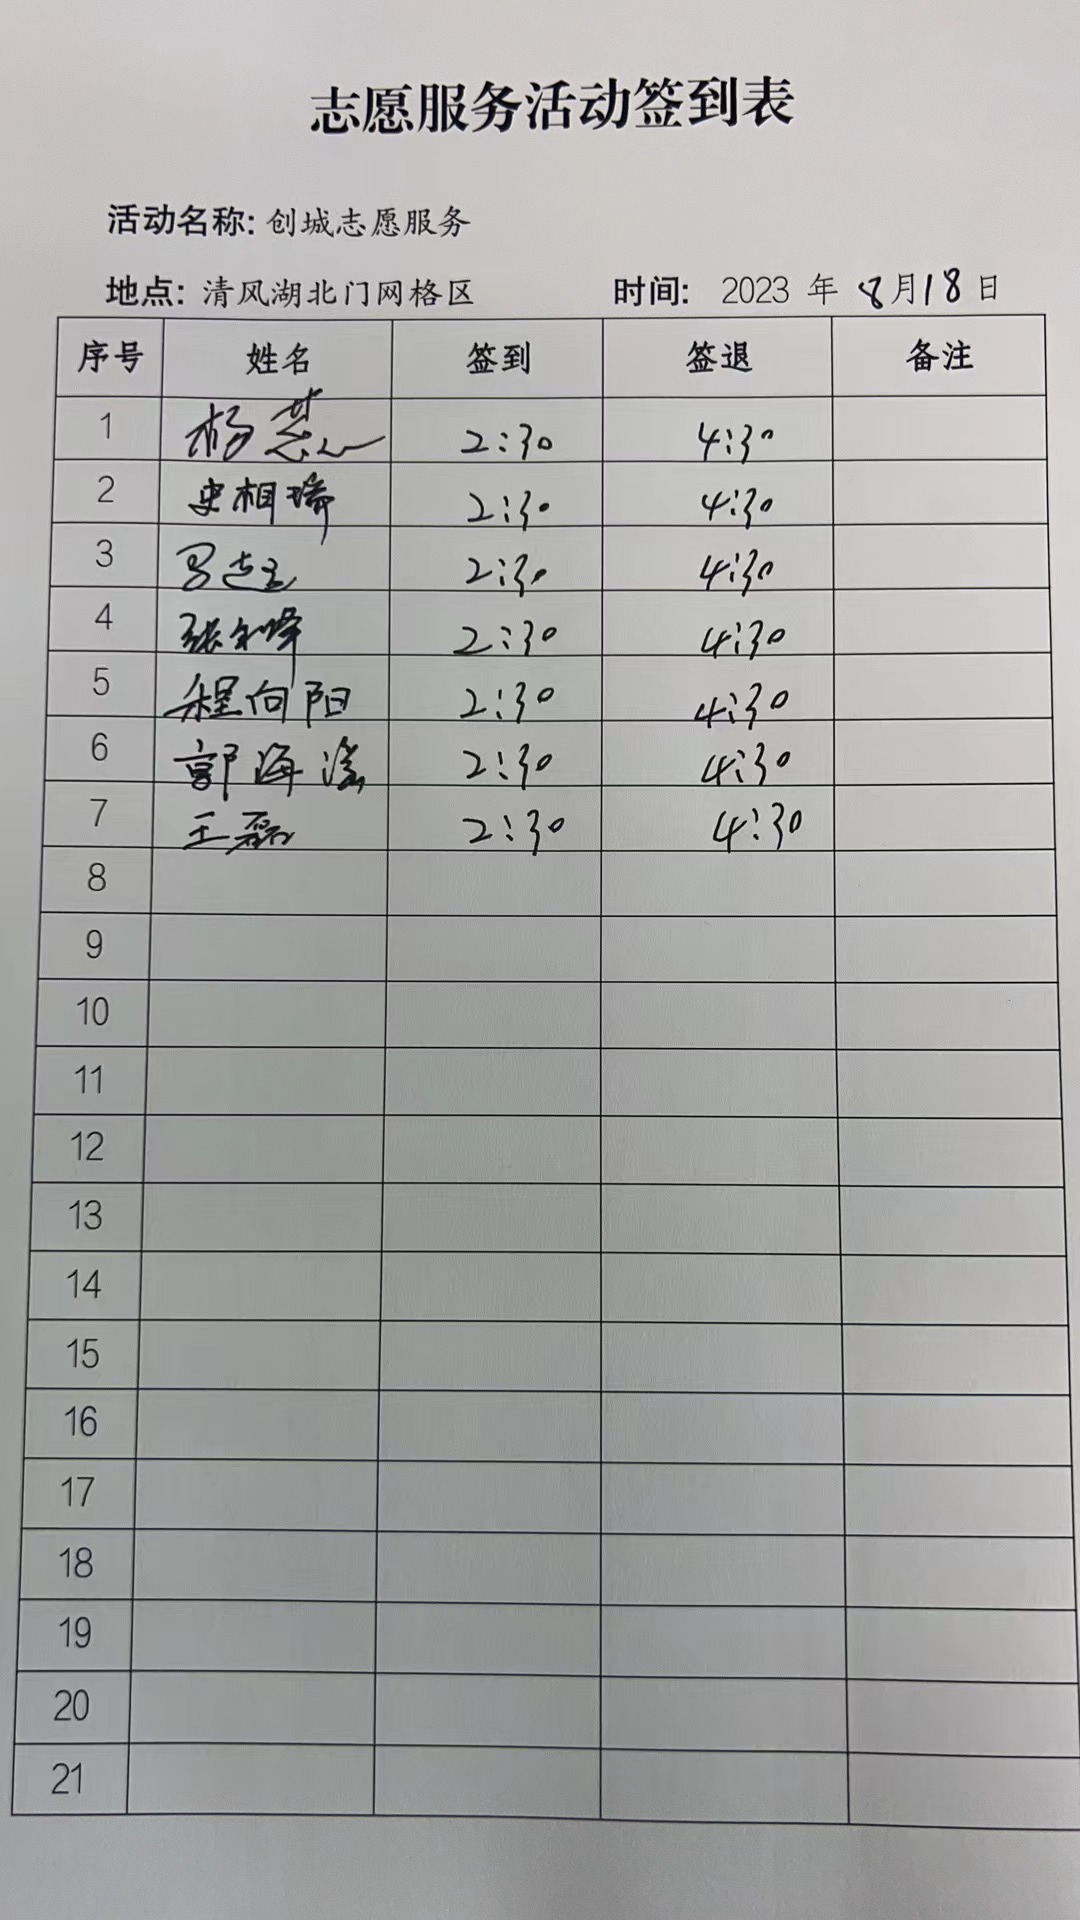 志愿服务活动签到表
活动名称: 创城志愿服务
地点: 清风湖北门网格区 时间: 2023 年 8月18日
序号 姓名 签到 签退 备注
1 杨慧 2:30 4:30
2 史相瑞 2:30 4:30
3 2:30 4:30
4 张 峰 2:30 4:30
5 程向阳 2:30 4:30
6 郭海滢 2:30 4:30
7 王磊 2:30 4:30
8
9
10
11
12
13
14
15
16
17
18
19
20
21